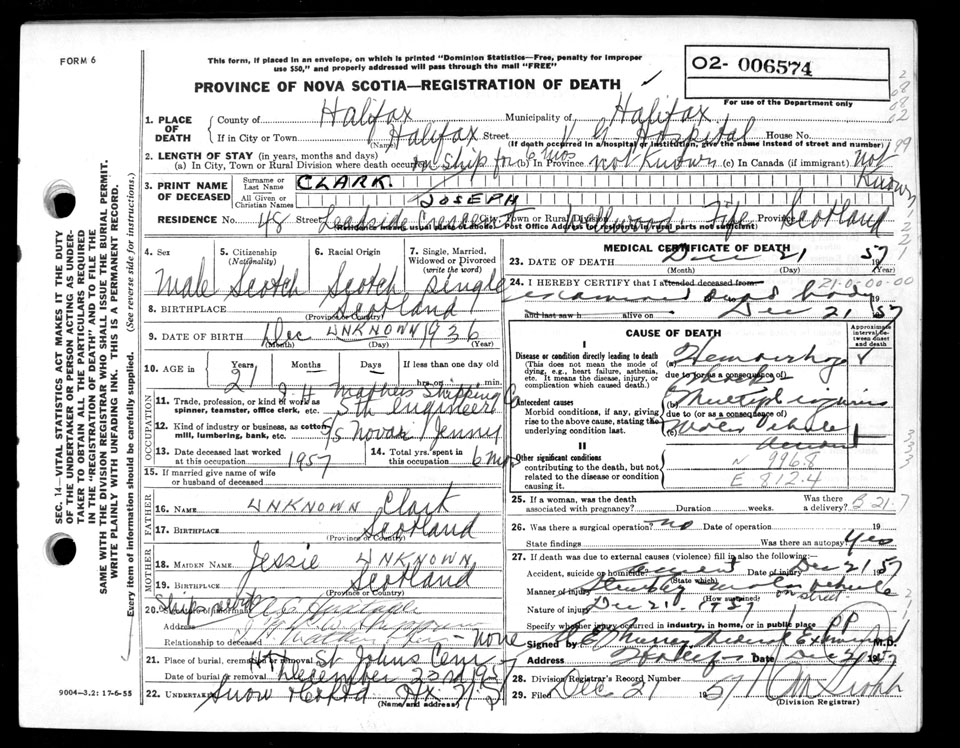 FORM 6
This form, if placed in an envelope, on which is printed "Dominion Statistics—Free, penalty for improper
use $50," and properly addressed will pass through the mail "FREE"
02- 006574
PROVINCE OF NOVA SCOTIA—REGISTRATION OF DEATH
For use of the Department only
1. PLACE OF DEATH
County of Halifax Municipality of Halifax
If in City or Town Halifax Street V G Hospital House No.
(Name) (If death occurred in a hospital or institution, give the name instead of street and number)
2. LENGTH OF STAY (in years, months and days)
(a) In City, Town or Rural Division where death occurred on ship for 6 mos (b) In Province not known (c) In Canada (if immigrant) not known
3. PRINT NAME OF DECEASED
Surname or Last Name CLARK
All Given or Christian Names JOSEPH
RESIDENCE No. 48 Street Crescent City, Town or Rural Division Fife Province Scotland
(Residence means usual place of abode. Post Office Address for residents in rural parts not sufficient)
4. Sex Male
5. Citizenship (Nationality) Scotch
6. Racial Origin Scotch
7. Single, Married, Widowed or Divorced (write the word) Single
8. BIRTHPLACE Scotland
(Province or Country)
9. DATE OF BIRTH Dec UNKNOWN 1936
(Month) (Day) (Year)
10. AGE in Years 21 Months Days If less than one day old
hrs. or min.
OCCUPATION
11. Trade, profession, or kind of work as spinner, teamster, office clerk, etc. Shipping Co 5th Engineer
12. Kind of industry or business, as cotton mill, lumbering, bank, etc. S/S Novar Jenny
13. Date deceased last worked at this occupation 1957
14. Total yrs. spent in this occupation 6 mos
15. If married give name of wife or husband of deceased
FATHER
16. NAME UNKNOWN Clark
17. BIRTHPLACE Scotland
(Province or Country)
MOTHER
18. MAIDEN NAME Jessie UNKNOWN
19. BIRTHPLACE Scotland
(Province or Country)
20.
Address
Relationship to deceased none
21. Place of burial, cremation or removal St Johns Cem
December 23rd 1957
22. UNDERTAKER Snow & Co Ltd Hx
(Name and address)
MEDICAL CERTIFICATE OF DEATH
23. DATE OF DEATH Dec 21 1957
(Month) (Day) (Year)
24. I HEREBY CERTIFY that I attended deceased from 21-0-00-00
examined dead body 19
and last saw h alive on Dec 21 57
CAUSE OF DEATH
Approximate interval between onset and death
I
Disease or condition directly leading to death
(This does not mean the mode of dying, e.g., heart failure, asthenia, etc. It means the disease, injury, or complication which caused death.)
(a) Hemorrhage
due to (or as a consequence of)
Antecedent causes
Morbid conditions, if any, giving rise to the above cause, stating the underlying condition last.
(b) Multiple injuries
due to (or as a consequence of)
(c) Motor Vehicle
II
Other significant conditions
contributing to the death, but not related to the disease or condition causing it.
N 996.8
E 812.4
25. If a woman, was the death associated with pregnancy? Duration weeks. Was there a delivery? B-21-7
26. Was there a surgical operation? no Date of operation 19
State findings Was there an autopsy? yes
27. If death was due to external causes (violence) fill in also the following:
Accident, suicide or homicide? accident Date of injury Dec 21 57
(State which)
Manner of injury Struck by motor vehicle on street
(How sustained)
Nature of injury Dec 21. 1957
Specify whether injury occurred in industry, in home, or in public place PP
Signed by E Murray Medical Examiner M.D.
Address Halifax Date Dec 21 1957
28. Division Registrar's Record Number
29. Filed Dec 21 1957
(Division Registrar)
9004—3.2: 17-6-55
SEC. 14—VITAL STATISTICS ACT MAKES IT THE DUTY
OF THE UNDERTAKER OR PERSON ACTING AS UNDER-
TAKER TO OBTAIN ALL THE PARTICULARS REQUIRED
IN THE "REGISTRATION OF DEATH" AND TO FILE THE
SAME WITH THE DIVISION REGISTRAR WHO SHALL ISSUE THE BURIAL PERMIT.
WRITE PLAINLY WITH UNFADING INK. THIS IS A PERMANENT RECORD.
Every item of information should be carefully supplied. (See reverse side for instructions.)